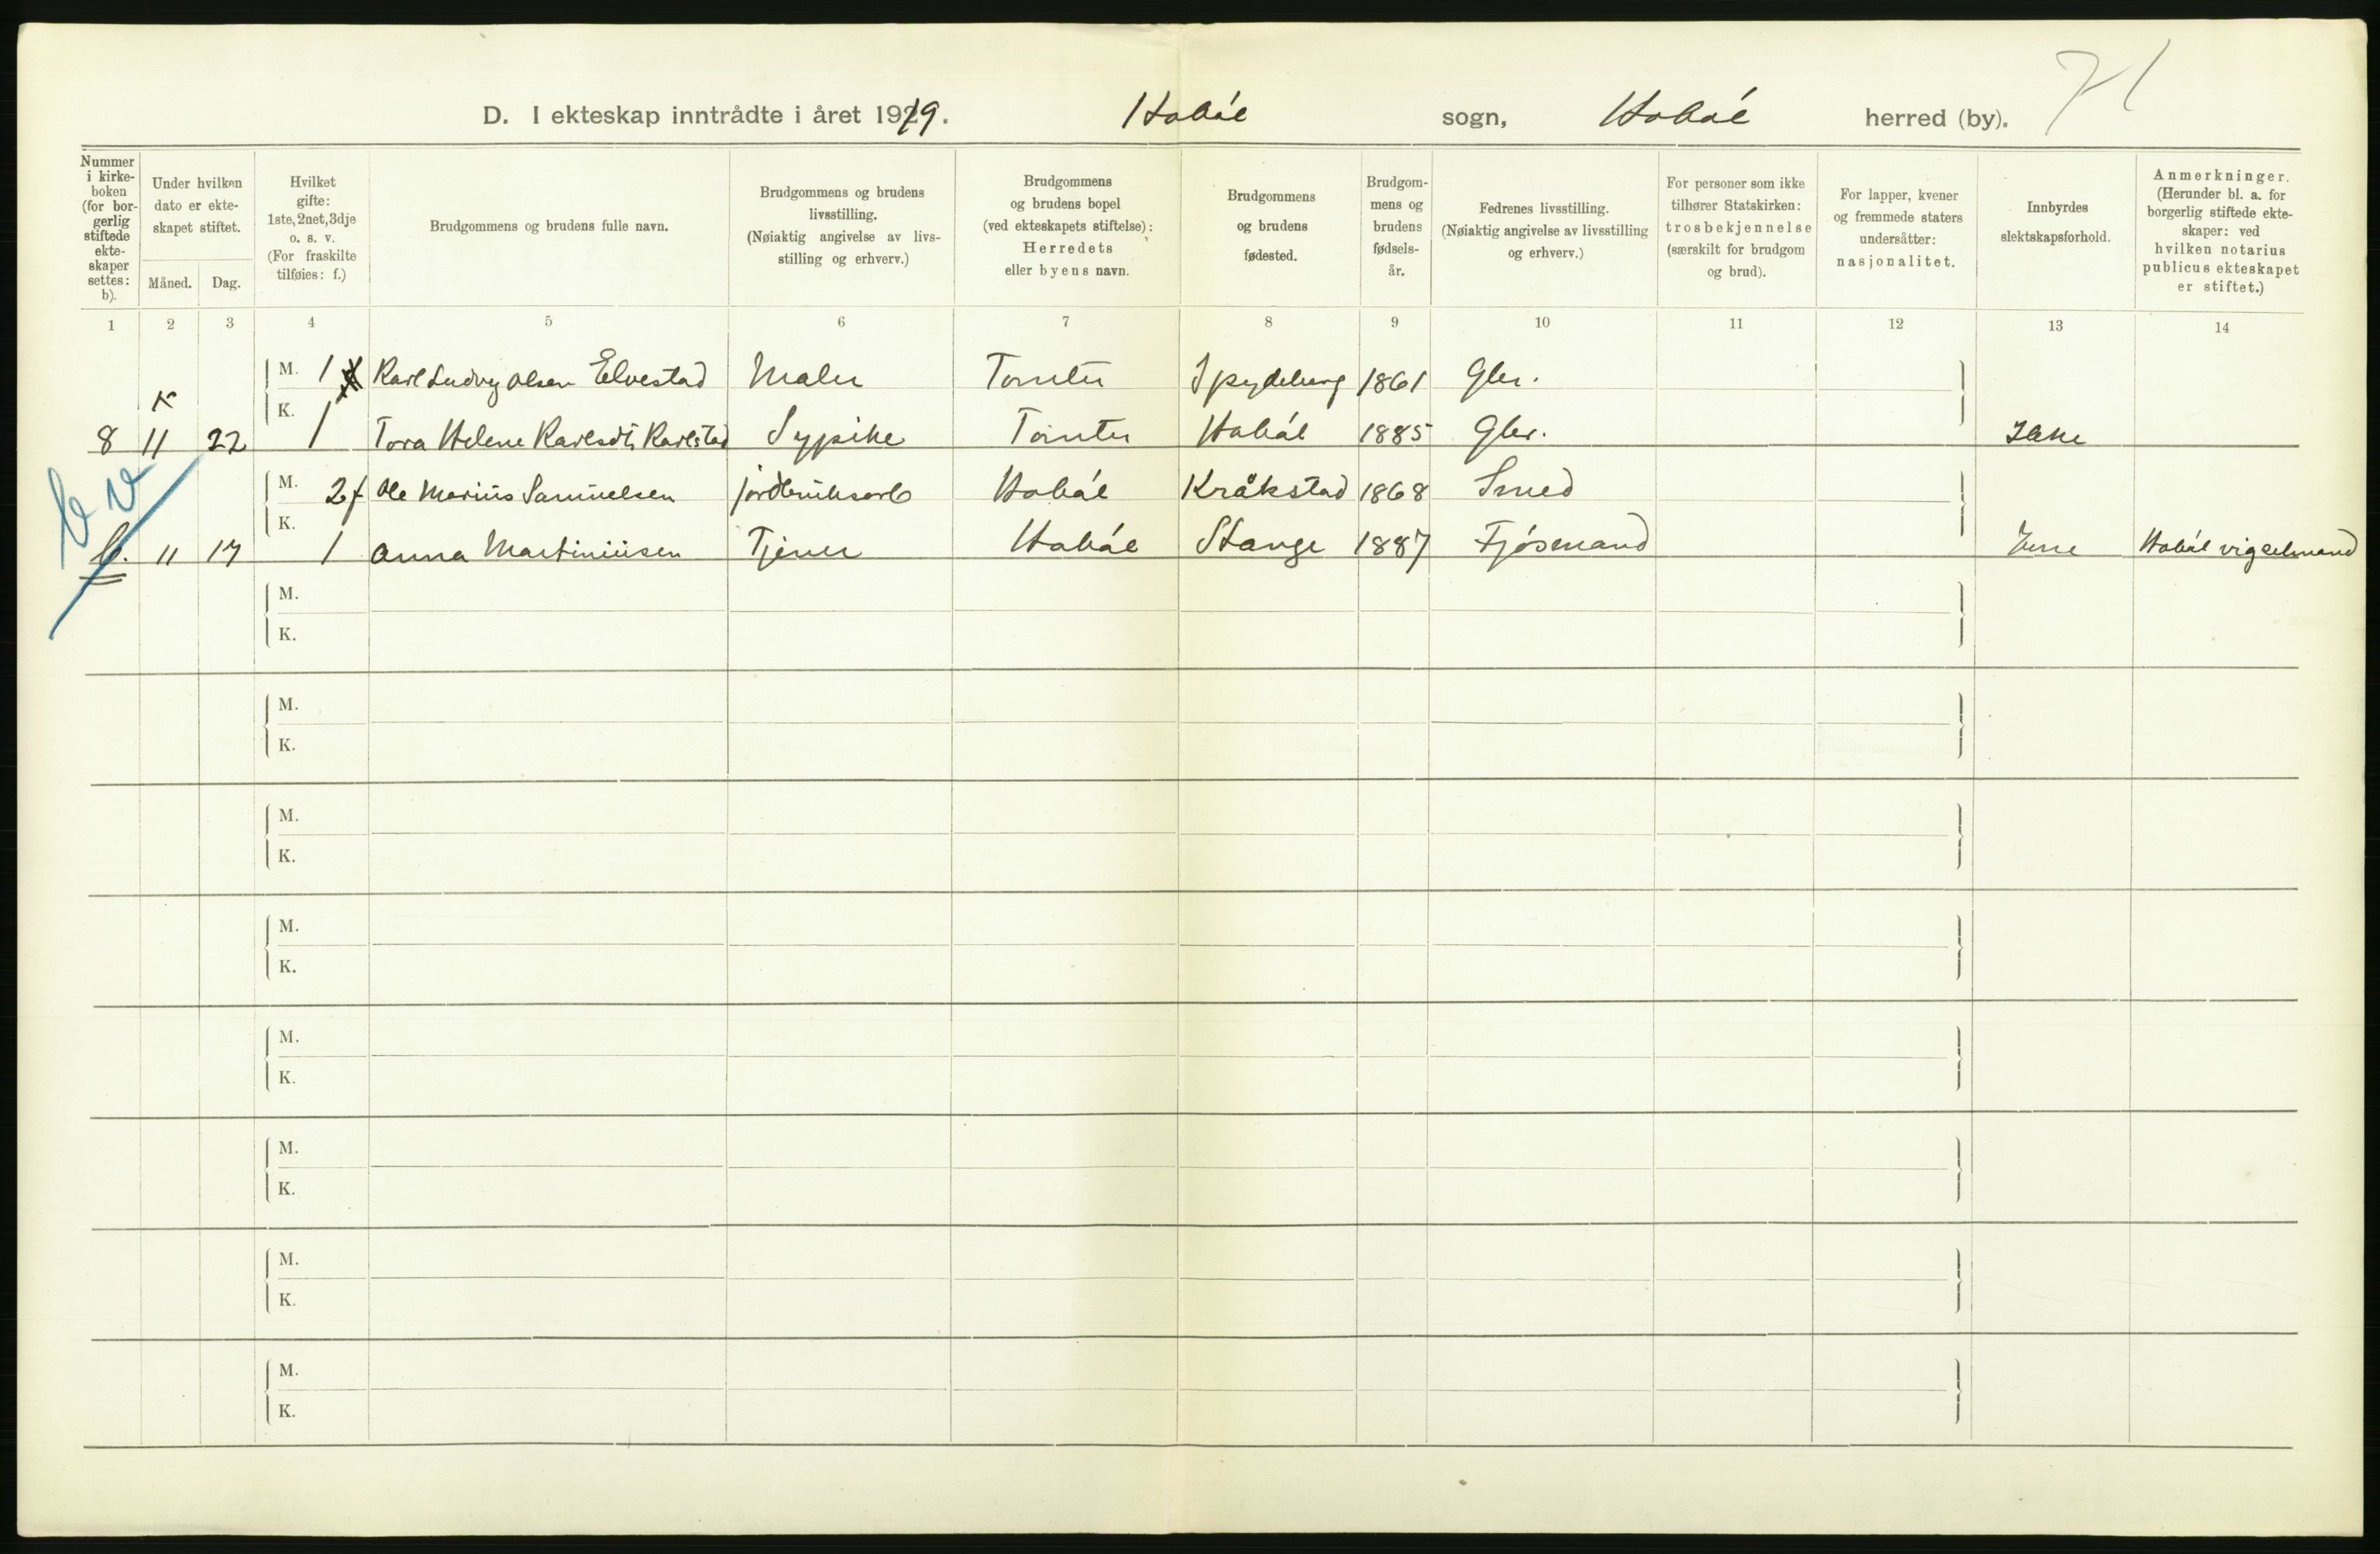 D. I ekteskap inntrådte i året 1919. Hobøl sogn, Hobøl herred (by). 71
Nummer i kirke-boken (for bor-gerlig stiftede ekte-skaper settes: b).
Under hvilken dato er ekte-skapet stiftet.
Måned. Dag.
Hvilket gifte: 1ste, 2net, 3dje o. s. v. (For fraskilte tilføies: f.)
Brudgommens og brudens fulle navn.
Brudgommens og brudens livsstilling. (Nøiaktig angivelse av livs-stilling og erhverv.)
Brudgommens og brudens bopel (ved ekteskapets stiftelse): Herredets eller byens navn.
Brudgommens og brudens fødested.
Brudgom-mens og brudens fødsels-år.
Fedrenes livsstilling. (Nøiaktig angivelse av livsstilling og erhverv.)
For personer som ikke tilhører Statskirken: trosbekjennelse (særskilt for brudgom og brud).
For lapper, kvener og fremmede staters undersåtter: nasjonalitet.
Innbyrdes slektskapsforhold.
Anmerkninger. (Herunder bl. a. for borgerlig stiftede ekte-skaper: ved hvilken notarius publicus ekteskapet er stiftet.)
1 2 3 4 5 6 7 8 9 10 11 12 13 14
M. 1 Karl Ludvig Olsen Elvestad Maler Tomter Spydeberg 1861 Gbr.
K
8 11 22 K. 1 Tora Helene Karlsdt. Karlstad Sypike Tomter Hobøl 1885 Gbr. Ikke
b v
M. 2 f Ole Marius Samuelsen jordbruksarb Hobøl Kråkstad 1868 Smed
b. 11 17 K. 1 Anna Martiniusen Tjener Hobøl Stange 1887 Fjøsmand Hobøl vigselmand
M.
K.
M.
K.
M.
K.
M.
K.
M.
K.
M.
K.
M.
K.
M.
K.